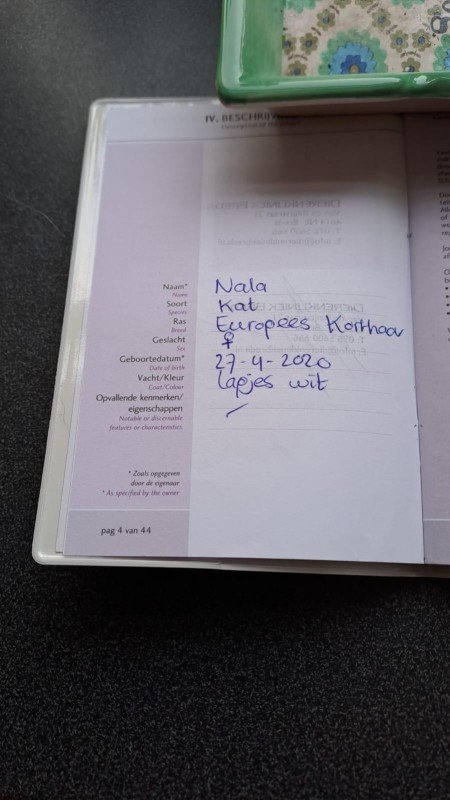 IV. BESCHRIJVING
Description of the
Naam* Nala
Name
Soort Kat
Species
Ras Europees Korthaar
Breed
Geslacht ♀
Sex
Geboortedatum* 27-4-2020
Date of birth
Vacht/Kleur lapjes wit
Coat/Colour
Opvallende kenmerken/ /
eigenschappen
Notable or discernable
features or characteristics
* Zoals opgegeven
door de eigenaar
* As specified by the owner
pag 4 van 44